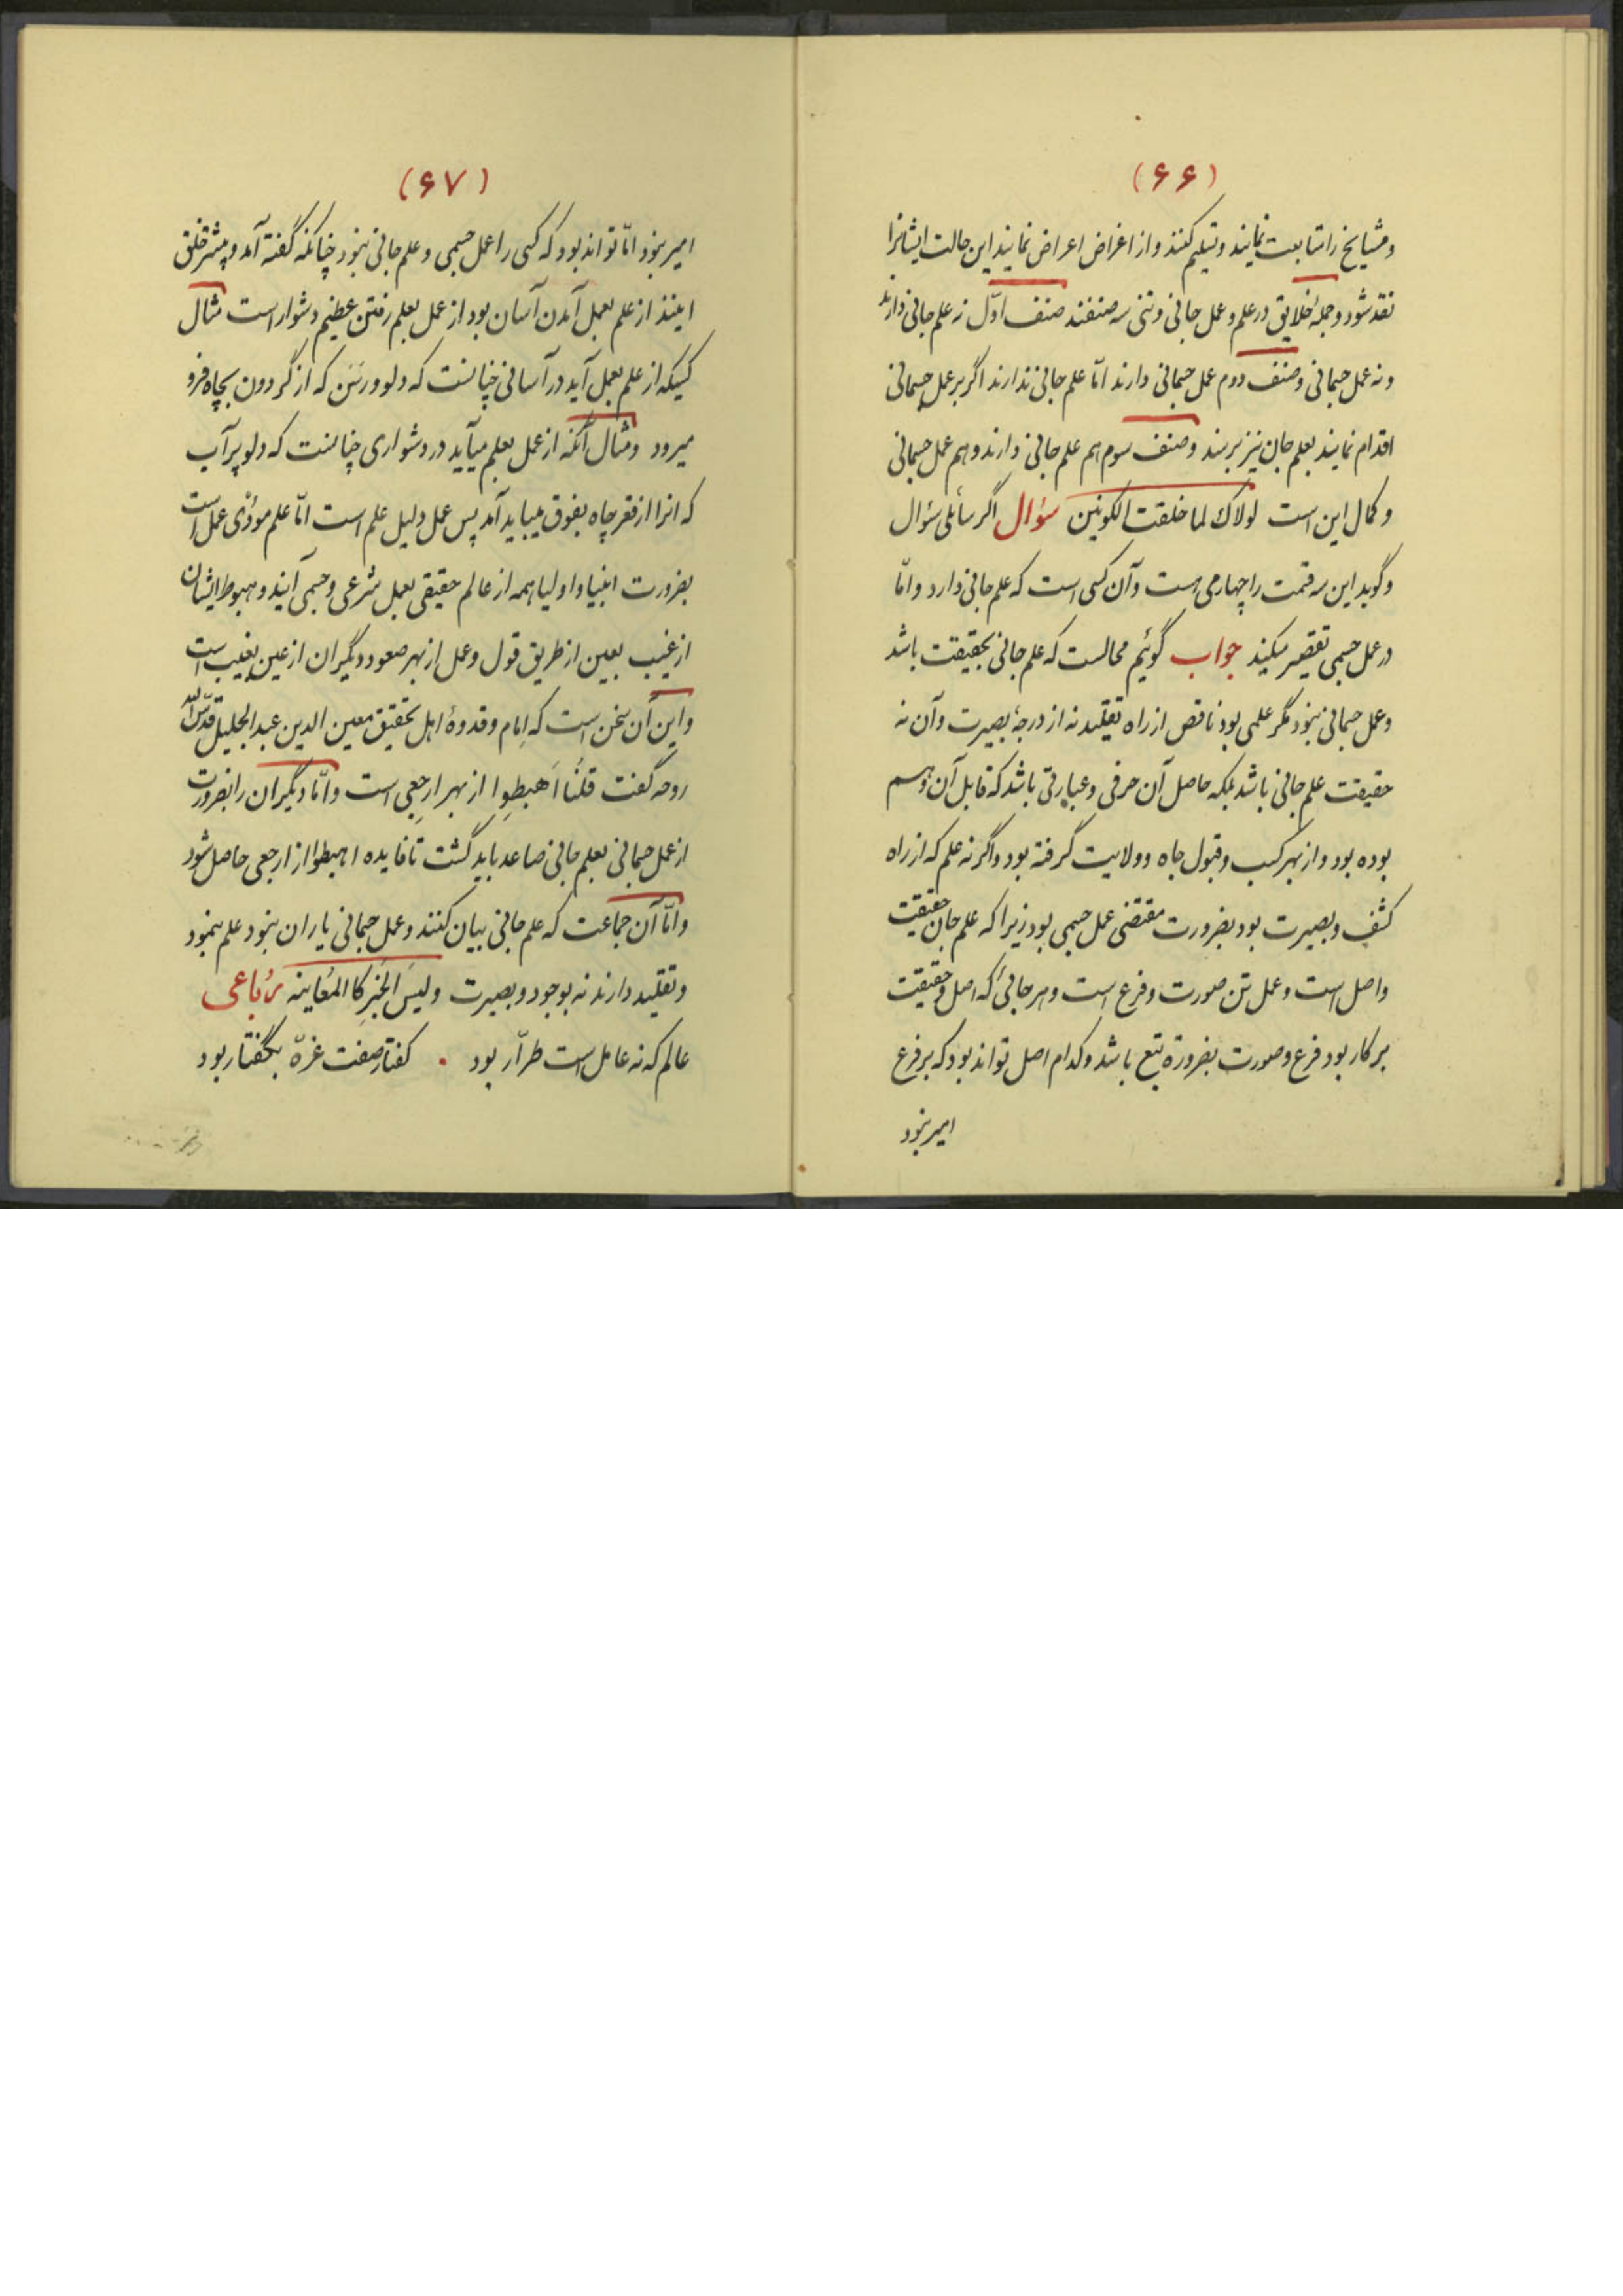 (۶۶)
ومشایخ را متابعت نمایند وتسلیم کنند واز اغراض اعراض نمایند این حالت ایشانرا
نقد شود وجملهٔ خلایق در علم وعمل جانی وتنی سه صنفند صنف اوّل نه علم جانی دارند
ونه عمل جسمانی وصنف دوم عمل جسمانی دارند امّا علم جانی ندارند اگر بر عمل جسمانی
اقدام نمایند بعلم جان نیز برسند وصنف سوم هم علم جانی دارند وهم عمل جسمانی
وکمال این است لولاک لما خلقت الکونین سؤال اگر سائلی سؤال
وگوید این سه قسمت را چهارمی هست وآن کسی است که علم جانی دارد وامّا
در عمل جسمی تقصیر میکند جواب گوئیم محالست که علم جانی بحقیقت باشد
وعمل جسمانی نبود مگر علمی بود ناقص از راه تقلید نه از درجهٔ بصیرت وآن نه
حقیقت علم جانی باشد بلکه حاصل آن حرفی وعبارتی باشد که قابل آن وهم
بوده بود واز بهر کسب وقبول جاه وولایت گرفته بود واگر نه علم که از راه
کشف وبصیرت بود بضرورت مقتضی عمل جسمی بود زیرا که علم جان حقیقت
واصل است وعمل تن صورت وفرع است وهر جائی که اصل وحقیقت
بر کار بود فرع وصورت بضرورة تبع باشد وکدام اصل تواند بود که بر فرع
امیر نبود
(۶۷)
امیر نبود امّا تواند بود که کسی را عمل جسمی وعلم جانی نبود چنانکه گفته آمد وبیشتر خلق
اینند از علم بعمل آمدن آسان بود از عمل بعلم رفتن عظیم دشوار است مثال
کسیکه از علم بعمل آید در آسانی چنانست که دلو ورسن که از گردون بچاه فرو
میرود ومثال آنکه از عمل بعلم میآید در دشواری چنانست که دلو پر آب
که انرا از قعر چاه بفوق میباید آمد پس عمل دلیل علم است امّا علم مودّی عمل است
بضرورت انبیا واولیا همه از عالم حقیقی بعمل شرعی وجسمی آیند وهبوط ایشان
از غیب بعین از طریق قول وعمل از بهر صعود دیگران از عین بغیب است
واین آن سخن است که اِمام وقدوهٔ اهل تحقیق معین الدین عبد الجلیل قدّس الله
روحه گفت قلنَا اَهبِطوا از بهر ارجِعِی است وامّا دیگران را بضرورت
از عمل جسمانی بعلم جانی صاعد باید گشت تا فایده اهبطوا از ارجعی حاصل شود
وامّا آن جماعت که علم جانی بیان کنند وعمل جسمانی یاران نبود علم بنمود
وتقلید دارند نه بوجود وبصیرت ولیسَ الخَبَر کَا المُعاینه رُباعی
عالم که نه عامل است طرّار بود . کفتار صفت غرّه بگفتار بود